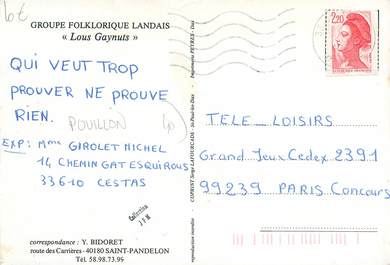 10€
GROUPE FOLKLORIQUE LANDAIS
« Lous Gaynuts »
QUI VEUT TROP
PROUVER NE PROUVE
RIEN.
POUILLON
40
EXP: Mme GIROLET MICHEL
14 CHEMIN GAT ESQUIROUS
33610 CESTAS
Collection
correspondance : Y. BIDORET
route des Carrières - 40180 SAINT-PANDELON
Tél. 58.98.73.99
reproduction interdite - COPRINT Serge LAFOURCADE - St-Paul-lès-Dax - Imprimerie PEYRES - Dax
2,20
TELE_LOISIRS
Grand Jeux Cedex 2391
99239 PARIS Concours